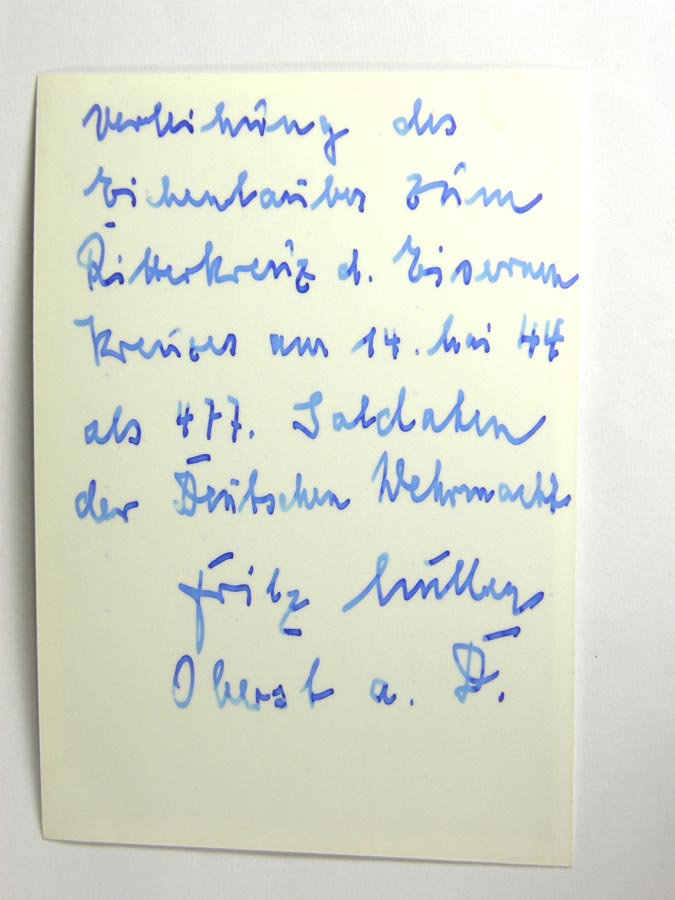 Verleihung des
Eichenlaubes zum
Ritterkreuz d. Eisernen
Kreuzes am 14. Mai 44
als 477. Soldaten
der Deutschen Wehrmacht.
Fritz Müller
Oberst a. D.